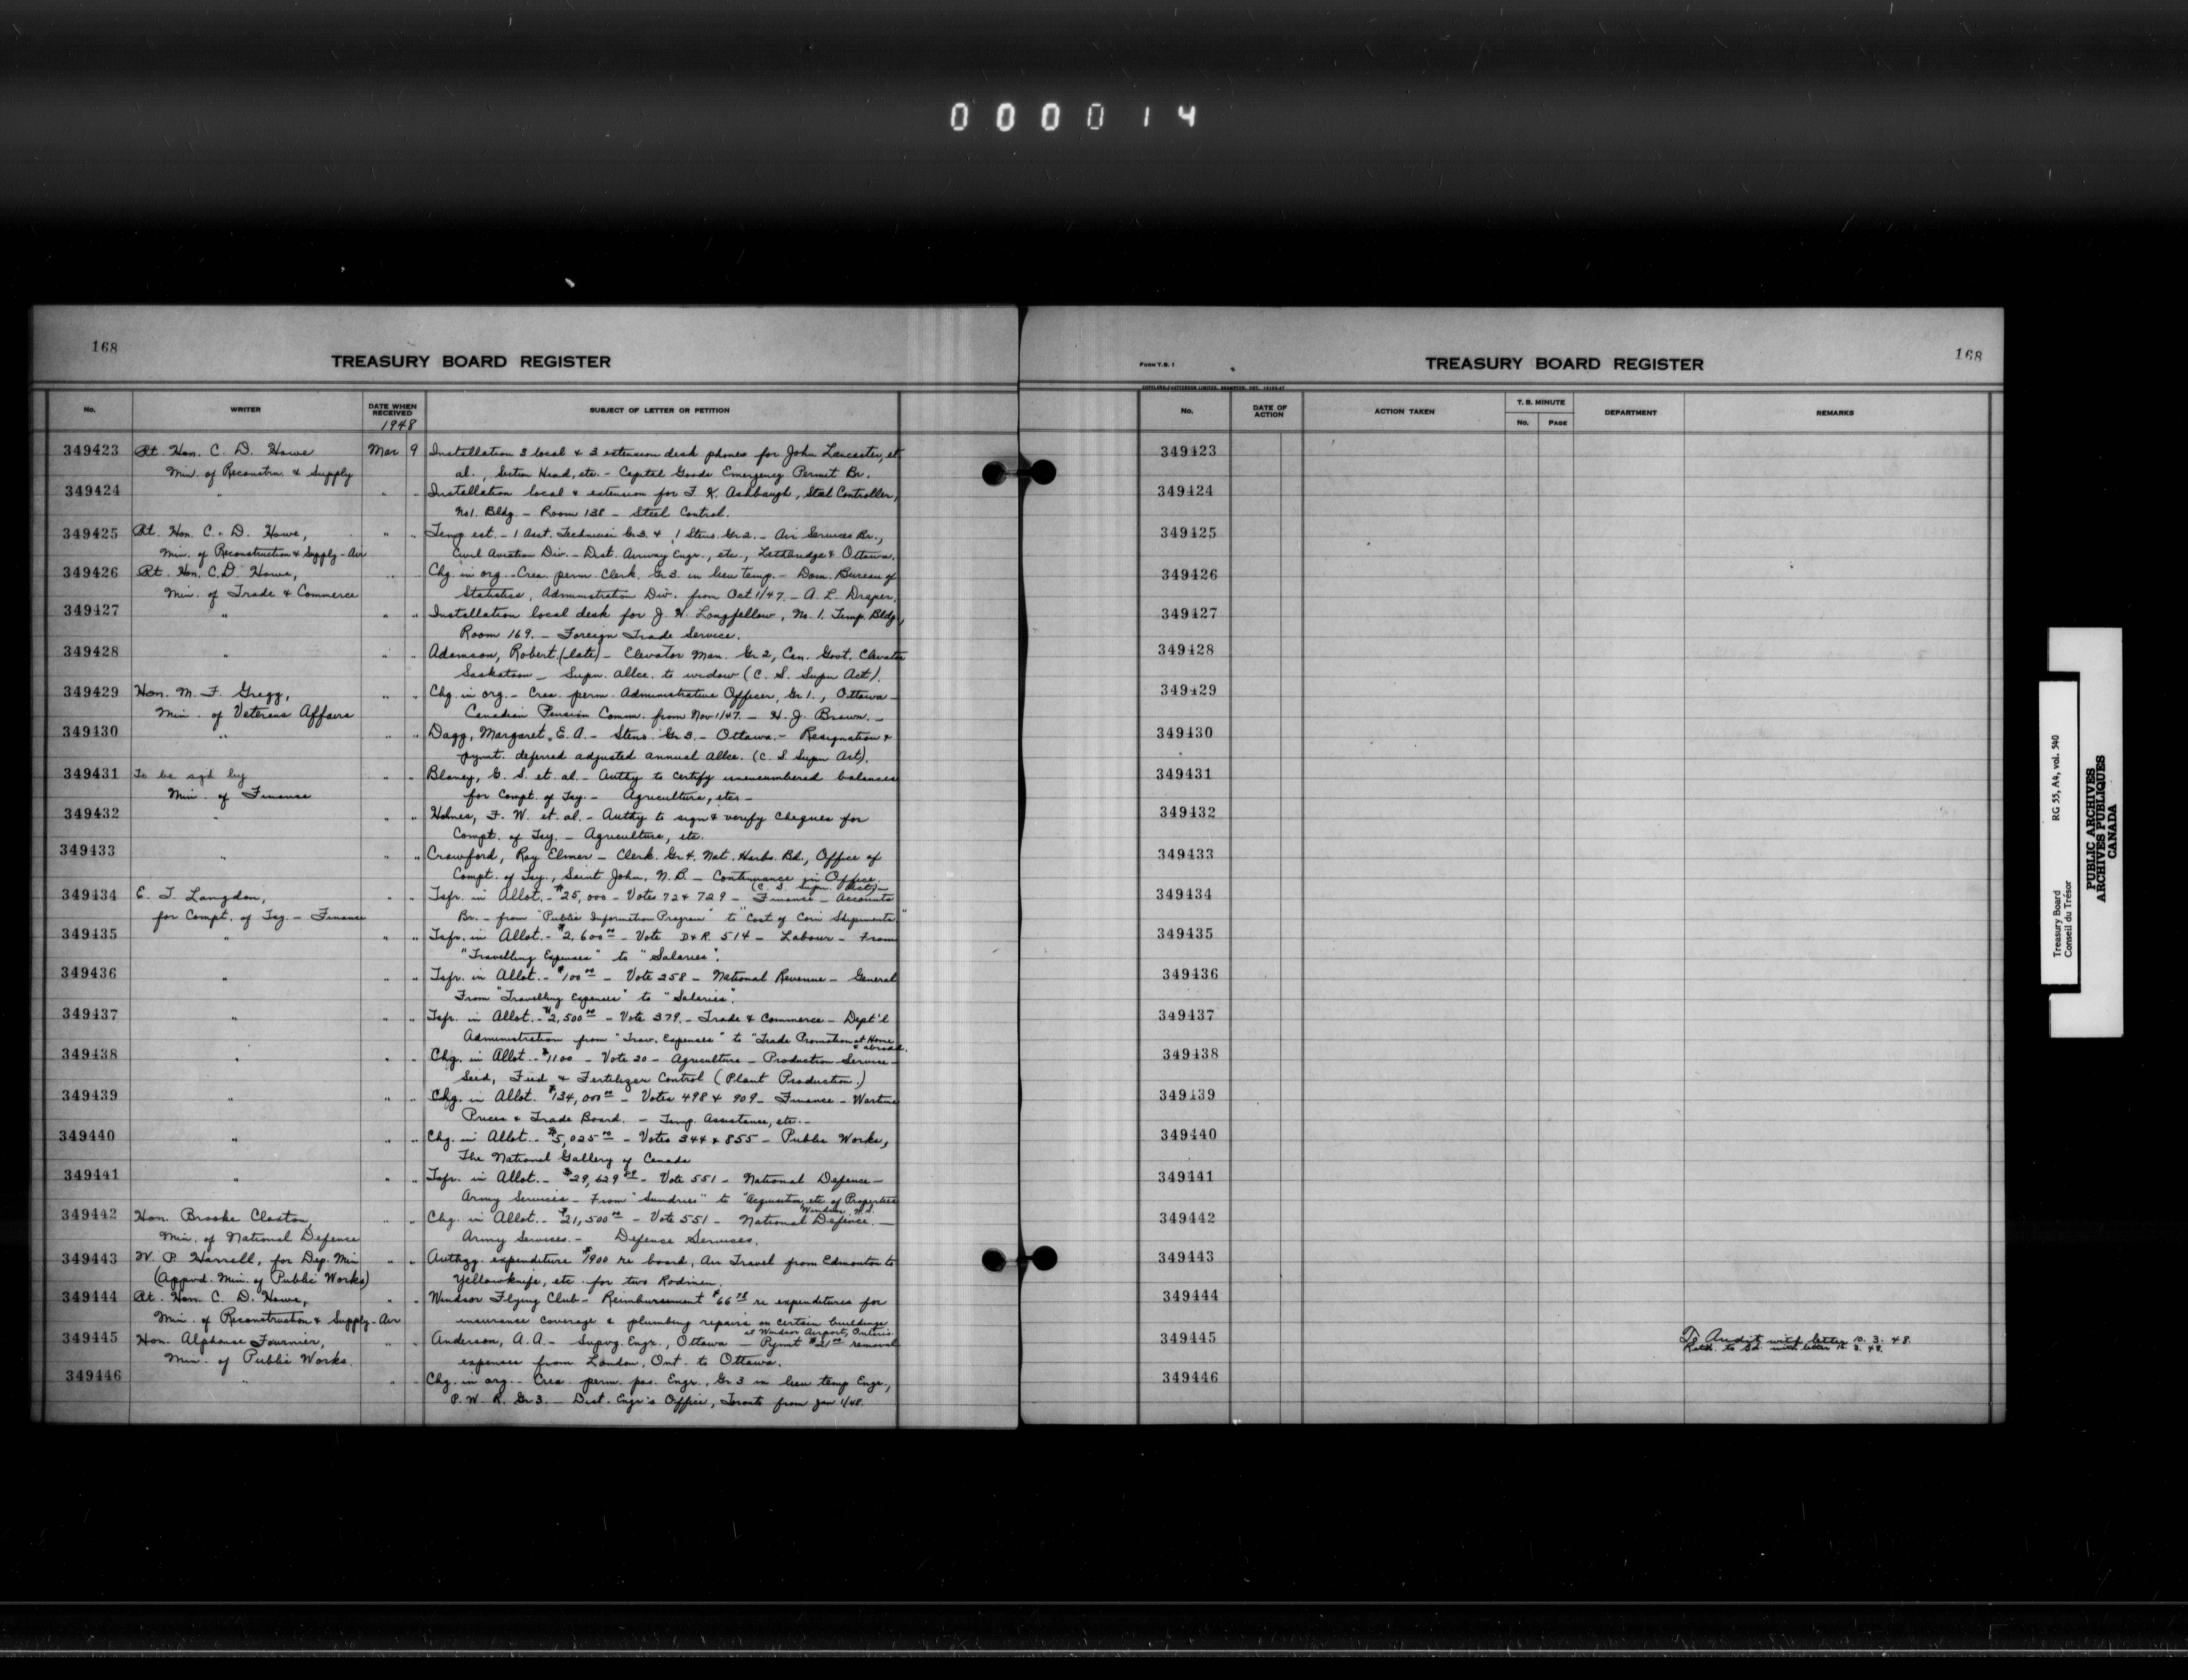 000014
168
TREASURY BOARD REGISTER
No. WRITER DATE WHEN RECEIVED SUBJECT OF LETTER OR PETITION
1948
349423 Rt. Hon. C. D. Howe Mar 9 Installation 3 local & 3 extension desk phones for John Lancaster, et
Min. of Reconstrn. & Supply al., Section Head, etc. - Capital Goods Emergency Permit Br.
349424 " " " Installation local & extension for F. K. Ashbaugh, Steel Controller,
No 1. Bldg. - Room 138 - Steel Control.
349425 Rt. Hon. C. D. Howe, " " Temp est. - 1 Asst. Technician Gr 3. & 1 Steno. Gr 2. - Air Services Br.,
Min. of Reconstruction & Supply - Air Civil Aviation Div. - Dist. Airway Engr., etc., Lethbridge & Ottawa.
349426 Rt. Hon. C. D. Howe, " " Chg. in org. - Crea. perm. Clerk. Gr 3. in lieu temp. - Dom. Bureau of
Min. of Trade & Commerce Statistics, Administration Div. from Oct 1/47. - A. L. Draper.
349427 " " " Installation local desk for J. H. Longfellow, No. 1. Temp. Bldg.,
Room 169. - Foreign Trade Service.
349428 " " " Adamson, Robert. (late) - Elevator Man. Gr 2, Can. Govt. Elevator
Saskatoon - Supn. allce. to widow (C. S. Supn Act).
349429 Hon. M. F. Gregg, " " Chg. in org. - Crea. perm. Administrative Officer, Gr 1., Ottawa -
Min. of Veterans Affairs Canadian Pension Comm. from Nov 1/47. - H. J. Brown. -
349430 " " " Dagg, Margaret, E. A. - Steno. Gr 3. - Ottawa. - Resignation &
pymt. deferred adjusted annual allce. (C. S. Supn Act).
349431 To be sgd by " " Blaney, G. S. et. al. - Authy to certify unencumbered balances
Min. of Finance for Compt. of Tsy. - Agriculture, etc. -
349432 " " " Holmes, F. W. et. al. - Authy to sign & verify cheques for
Compt. of Tsy. - Agriculture, etc.
349433 " " " Crawford, Ray Elmer - Clerk. Gr 4. Nat. Harbs. Bd., Office of
Compt. of Tsy., Saint John, N. B. - Continuance in Office.
(C. S. Supn. Act) -
349434 E. T. Langdon, " " Tsfr. in Allot. - $25,000 - Votes 72 & 729 - Finance - Accounts
for Compt. of Tsy. - Finance Br. - from "Public Information Program" to "Cost of Coin Shipments."
349435 " " " Tsfr. in Allot. - $2,600 00 - Vote D & R. 514 - Labour - From
"Travelling Expenses" to "Salaries".
349436 " " " Tsfr. in Allot. - $100 00 - Vote 258 - National Revenue - General
From "Travelling Expenses" to "Salaries".
349437 " " " Tsfr. in Allot. - $2,500 00 - Vote 379. - Trade & Commerce - Dept'l
Administration from "Trav. Expenses" to "Trade Promotion at Home
& abroad.
349438 " " " Chg. in Allot. - $1100 - Vote 20 - Agriculture - Production Service -
Seed, Feed & Fertilizer Control (Plant Production.)
349439 " " " Chg. in Allot. $134,000 00 - Votes 498 & 909 - Finance - Wartime
Prices & Trade Board. - Temp. Assistance, etc. -
349440 " " " Chg. in Allot. - $5,025 00 - Votes 344 & 855 - Public Works,
The National Gallery of Canada
349441 " " " Tsfr. in Allot. - $29,629 - Vote 551 - National Defence -
Army Services - From "Sundries" to "Acquisition, etc of Properties
Windsor, N.S.
349442 Hon. Brooke Claxton, " " Chg. in Allot. - $21,500 00 - Vote 551 - National Defence. -
Min. of National Defence Army Services. - Defence Services.
349443 W. P. Harrell, for Dep. Min " " Authzg. expenditure $1900 re board, Air Travel from Edmonton to
(Appvd. Min. of Public Works) Yellowknife, etc. for two Rodmen.
349444 Rt. Hon. C. D. Howe, " " Windsor Flying Club - Reimbursement $66 re expenditures for
Min. of Reconstruction & Supply - Air insurance coverage & plumbing repairs on certain buildings
at Windsor Airport, Ontario.
349445 Hon. Alphonse Fournier, " " Anderson, A. A. - Supvg. Engr., Ottawa - Pymt $21 00 removal
Min. of Public Works. expenses from London, Ont. to Ottawa.
349446 " " " Chg. in org. - Crea. perm. pos. Engr., Gr 3 in lieu temp Engr.,
P. W. R. Gr 3. - Dist. Engr's Office, Toronto from Jan 1/48.
168
FORM T.B. 1
TREASURY BOARD REGISTER
No. DATE OF ACTION ACTION TAKEN T. B. MINUTE No. PAGE DEPARTMENT REMARKS
349423
349424
349425
349426
349427
349428
349429
349430
349431
349432
349433
349434
349435
349436
349437
349438
349439
349440
349441
349442
349443
349444
349445 To Audit with letter 10. 3. 48.
Retd. to Bd. with letter 3. 48.
349446
Treasury Board RG 55, A4, vol. 540
Conseil du Trésor
PUBLIC ARCHIVES
ARCHIVES PUBLIQUES
CANADA